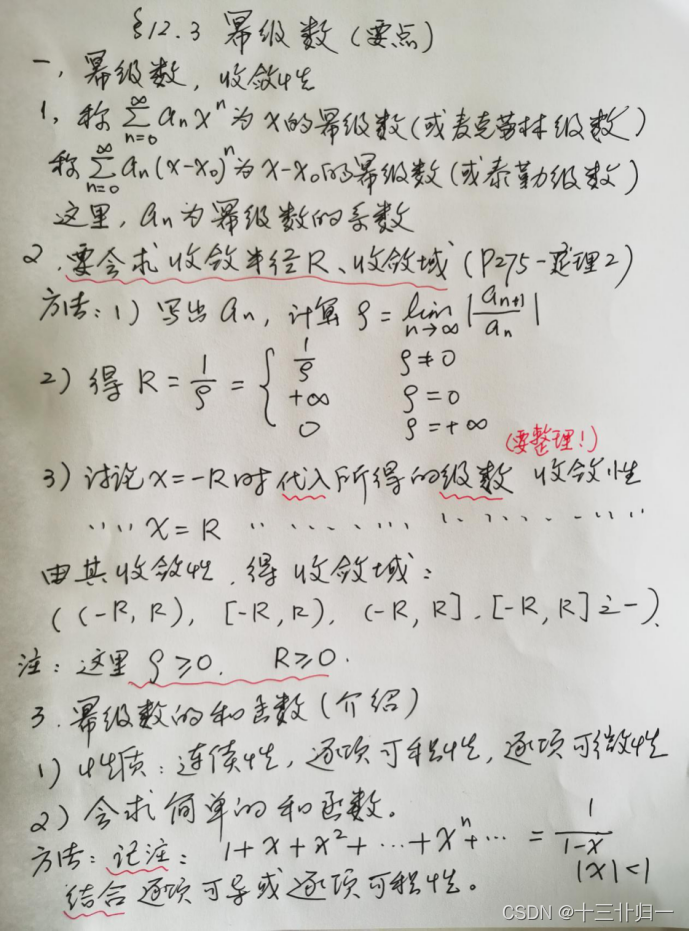 §12.3 幂级数(要点)
一、幂级数,收敛性
1、称 $\sum_{n=0}^{\infty} a_n x^n$ 为x的幂级数(或麦克劳林级数)
称 $\sum_{n=0}^{\infty} a_n (x-x_0)^n$ 为x-x_0的幂级数(或泰勒级数)
这里,a_n为幂级数的系数
2、要会求收敛半径R、收敛域(P275-定理2)
方法:1) 写出a_n,计算 $\rho = \lim_{n\to\infty} \left|\frac{a_{n+1}}{a_n}\right|$
2) 得 $R = \frac{1}{\rho} = \begin{cases} \frac{1}{\rho} & \rho \neq 0 \\ +\infty & \rho = 0 \\ 0 & \rho = +\infty \end{cases}$
(要整理!)
3) 讨论x=-R时代入所得的级数 收敛性
〃〃 x=R 〃 〃 〃 〃 〃 〃 〃 〃
由其收敛性,得收敛域:
((-R,R), [-R,R), (-R,R], [-R,R]之一).
注:这里 ρ≥0, R≥0.
3.幂级数的和函数(介绍)
1) 性质:连续性,逐项可积性,逐项可微性
2) 会求简单的和函数。
方法:记注: $1+x+x^2+\cdots+x^n+\cdots = \frac{1}{1-x}$
|x|<1
结合逐项可导或逐项可积性。
CSDN @十三卝归一